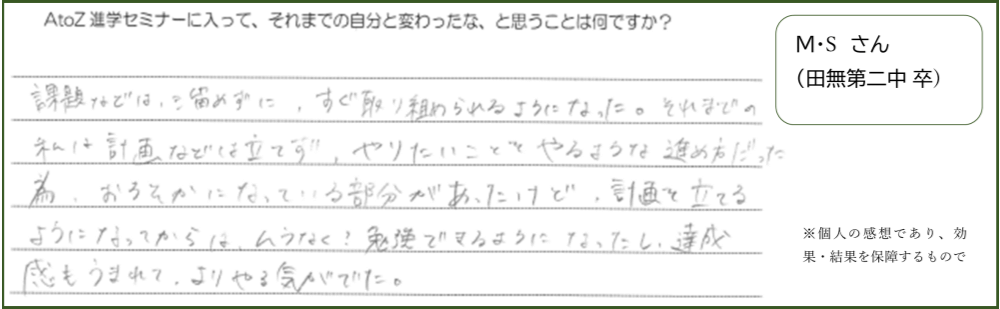 AtoZ 進学セミナーに入って、それまでの自分と変わったな、と思うことは何ですか?
M・S さん
(田無第二中 卒)
課題などは、溜めずに、すぐ取り組められるようになった。それまでの
私は計画などは立てず、やりたいことをやるような進め方だった
為、おろそかになっている部分があったけど、計画を立てる
ようになってからは、ムラなく?勉強できるようになったし、達成
感もうまれて、よりやる気がでた。
※個人の感想であり、効
果・結果を保障するもので